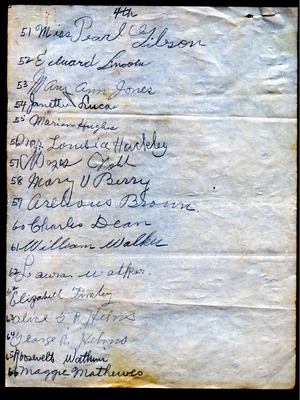 4th
51 Miss Pearl Gibson
52 Edward Lincoln
53 Mary Ann Jones
54 Janette Lucas
55 Marian Hughes
56 Louisia Hackley
57 Moses
58 Mary V Berry
59 Brown
60 Charles Dean
61 William Walker
62 Laura Walker
Elizabeth Finley
63 Alice G R Helms
64 George R. Helms
65 Roosevelt Watkins
66 Maggie Mathewes